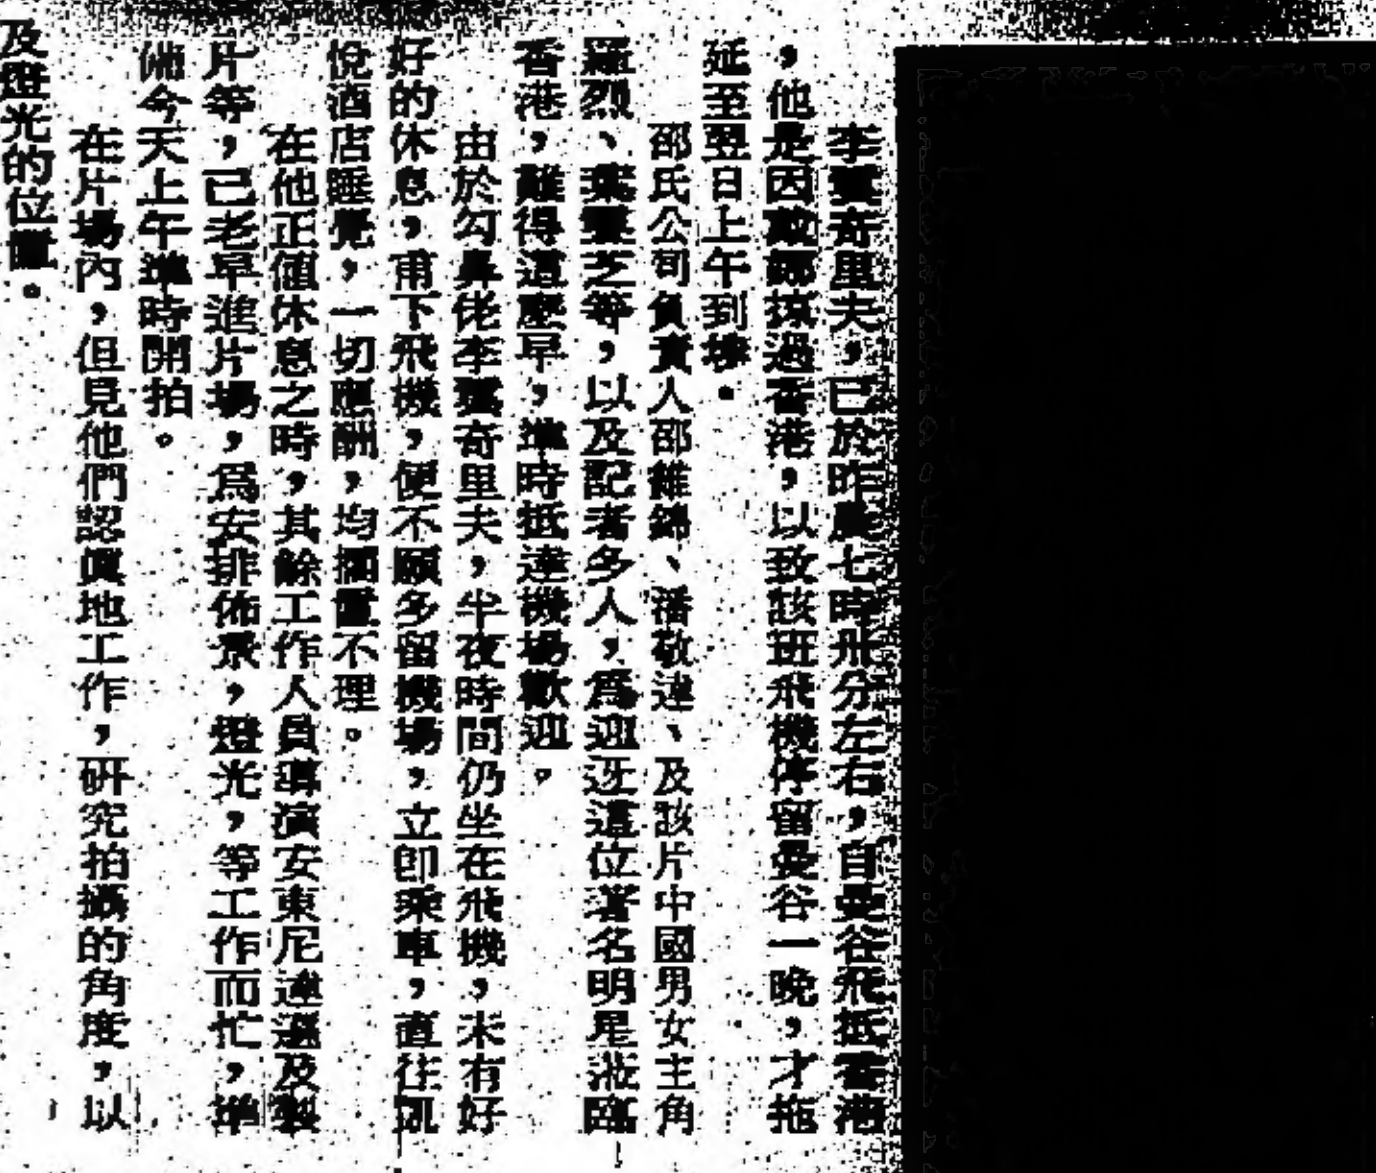 李雲奇里夫，已於昨晨七時卅分左右，自曼谷飛抵香港
，他是因颱風掠過香港，以致該班飛機停留曼谷一晚，才拖
延至翌日上午到埗。
邵氏公司負責人邵維錦、潘敬達、及該片中國男女主角
羅烈、葉靈芝等，以及記者多人，爲迎迓這位著名明星涖臨
香港，難得這麼早，準時抵達機場歡迎。
由於勾鼻佬李雲奇里夫，半夜時間仍坐在飛機，未有好
好的休息，甫下飛機，便不願多留機場，立卽乘車，直往凱
悅酒店睡覺，一切應酬，均擱置不理。
在他正値休息之時，其餘工作人員導演安東尼達遜及製
片等，已老早進片場，爲安排佈景，燈光，等工作而忙，準
備今天上午準時開拍。
在片場內，但見他們認眞地工作，硏究拍攝的角度，以
及燈光的位置。